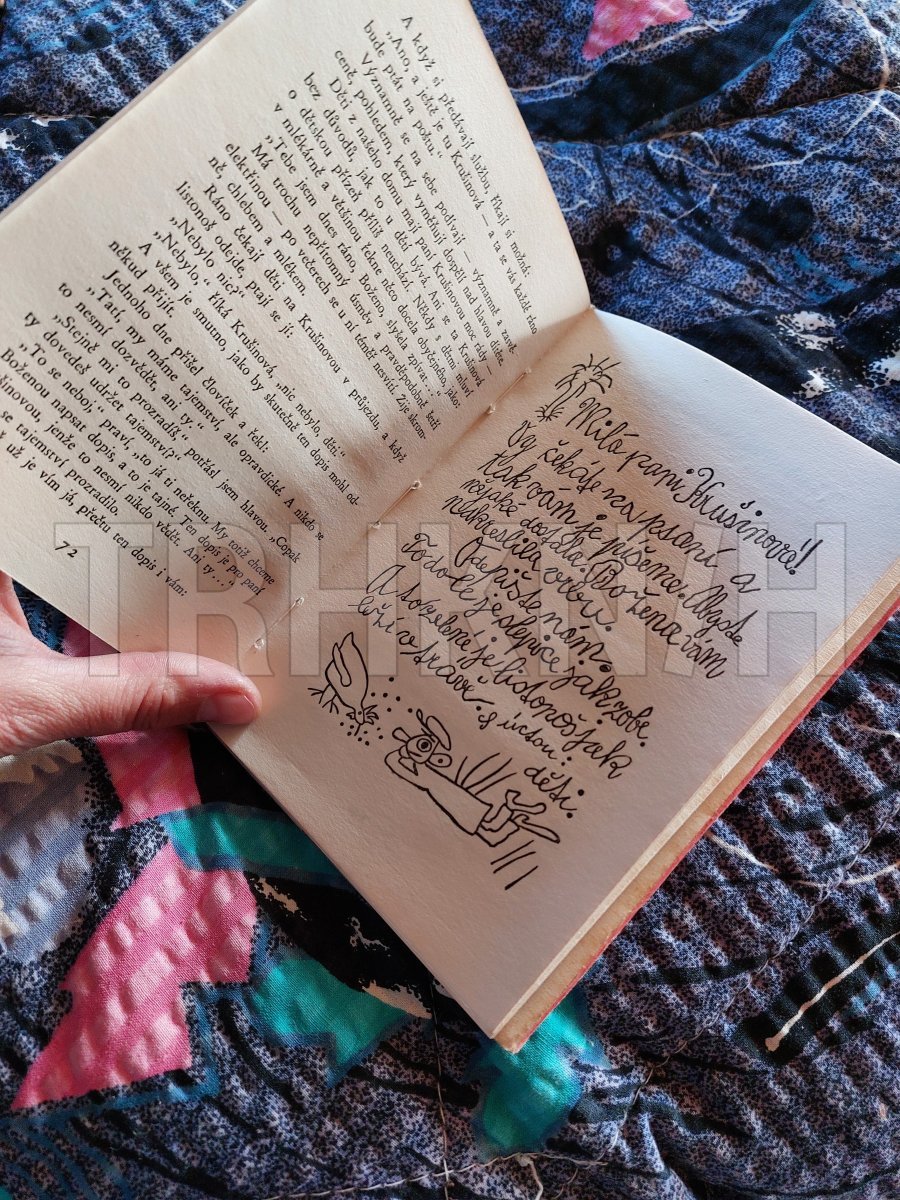 A když si předávají službu, říkají si možná:
„Ano, a ještě je tu Krušinová — a ta se vás každé ráno
bude ptát na poštu.“
Významně se na sebe podívají — významně a zasvě-
ceně, pohledem, který vyměňují dospělí nad hlavou dítěte.
Děti z našeho domu mají paní Krušinovou moc rády —
bez důvodů, jak to u dětí bývá. Ani se ta Krušinová
o dětskou přízeň příliš neuchází. Někdy s dětmi mluví
v mlékárně a většinou řekne něco docela obyčejného, jako:
„Tebe jsem dnes ráno, Boženo, slyšela zpívat.“
Má trochu nepřítomný úsměv a pravděpodobně šetří
elektřinou — po večerech se u ní téměř nesvítí. Žije skrom-
ně, chlebem a mlékem.
Ráno čekají děti na Krušinovou v průjezdu, a když
listonoš odejde, ptají se jí:
„Nebylo nic?“
„Nebylo,“ říká Krušinová, „nic nebylo, děti.“
A všem je smutno, jako by skutečně ten dopis mohl od-
někud přijít.
Jednoho dne přišel človíček a řekl:
„Tati, my máme tajemství, ale opravdické. A nikdo se
to nesmí dozvědět, ani ty.“
„Stejně mi to prozradíš,“ potřásl jsem hlavou. „Copak
ty dovedeš udržet tajemství?“
„To se neboj,“ praví, „to já ti neřeknu. My totiž chceme
Boženou napsat dopis, a to je tajné. Ten dopis je pro paní
šinovou, jenže to nesmí nikdo vědět. Ani ty . . .“
se tajemství prozradilo.
už je vím já, přečtu ten dopis i vám:
72
Milá paní Krušinová!
Vy čekáte na psaní a
tak vám je píšeme. Abyste
nějaké dostala. Božena vám
nakreslila vrbu.
Odepište nám.
To dole je slepice jak zobe.
A to zelené je listonoš jak
leží v trávě.
S úctou:
děti.